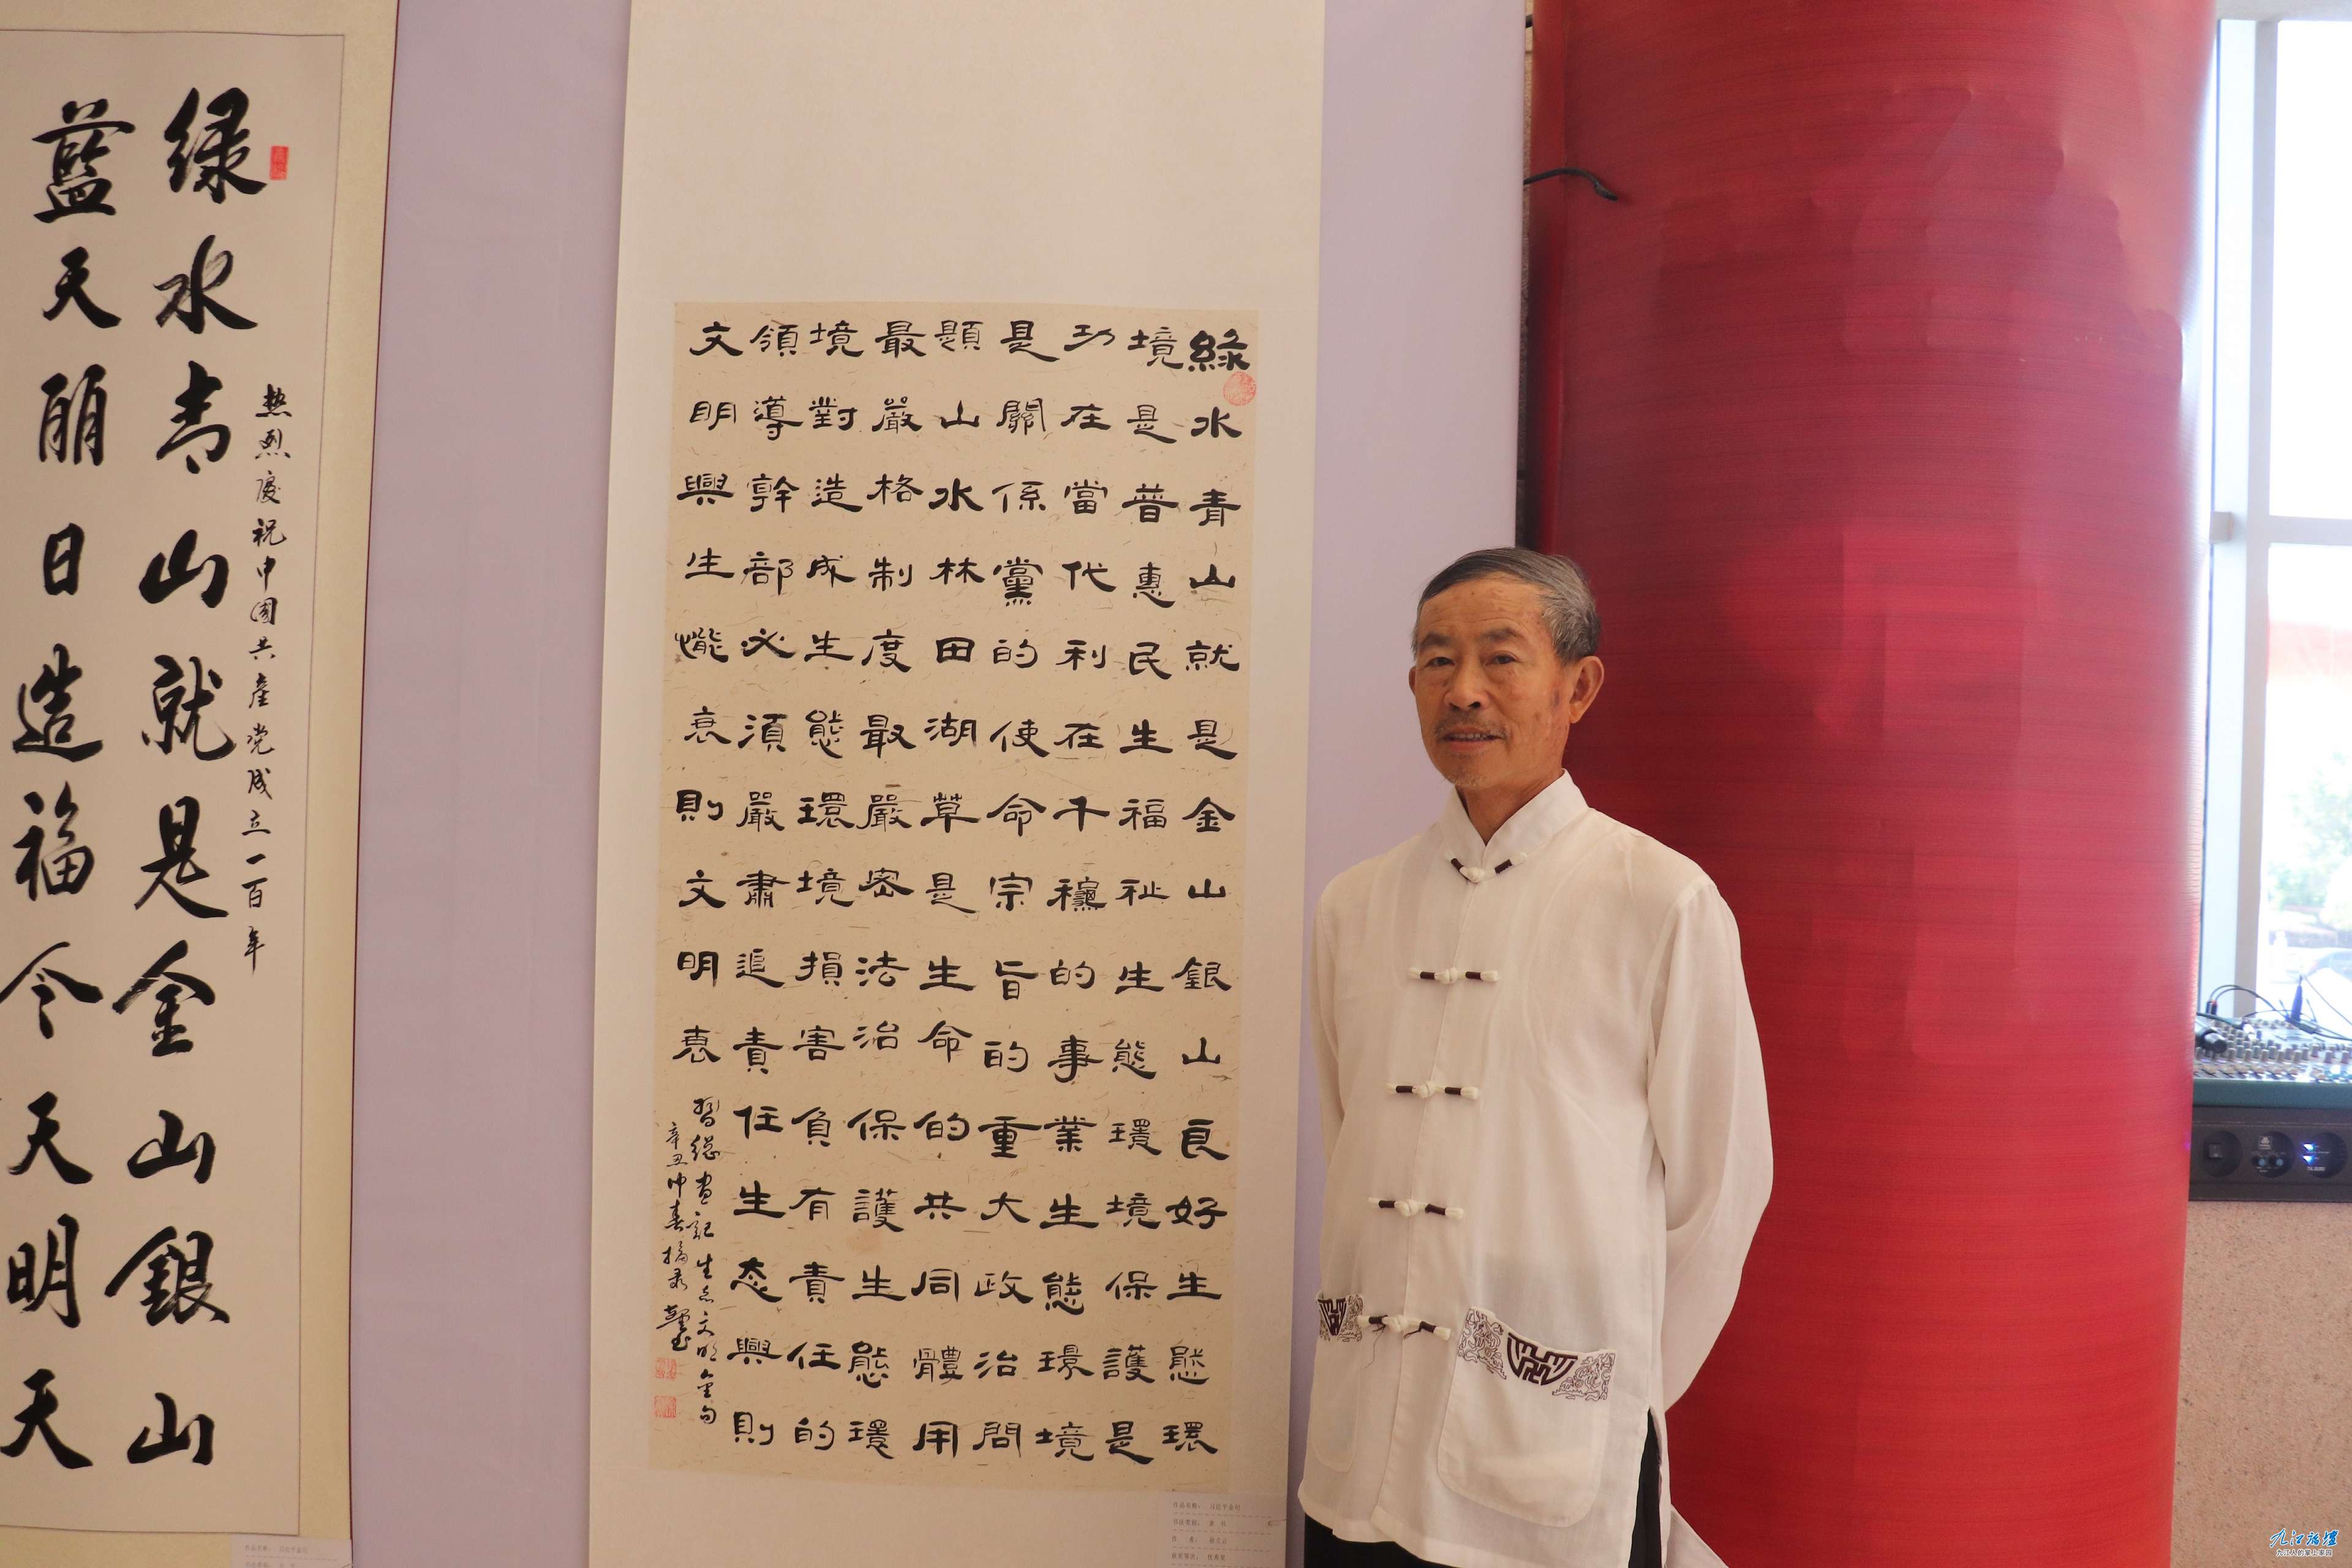 绿水青山就是金山銀山
藍天丽日造福今天明天
热烈慶祝中國共產党成立一百年
綠水青山就是金山銀山良好生態環
境是普惠民生福祉生態環境保護是
功在當代利在千穐的事業生態環境
是關係黨的使命宗旨的重大政治問
題山水林田湖草是生命的共同體用
最嚴格制度最嚴密法治保護生態環
境對造成生態環境損害負有責任的
領導幹部必須嚴肅追責任生态興則
文明興生態衰則文明衰
習總書記生态文明金句
辛丑仲春摘录
作品名称： 习近平金句
书法类别： 隶书
作者：
九江論壇
九江人的掌上家园